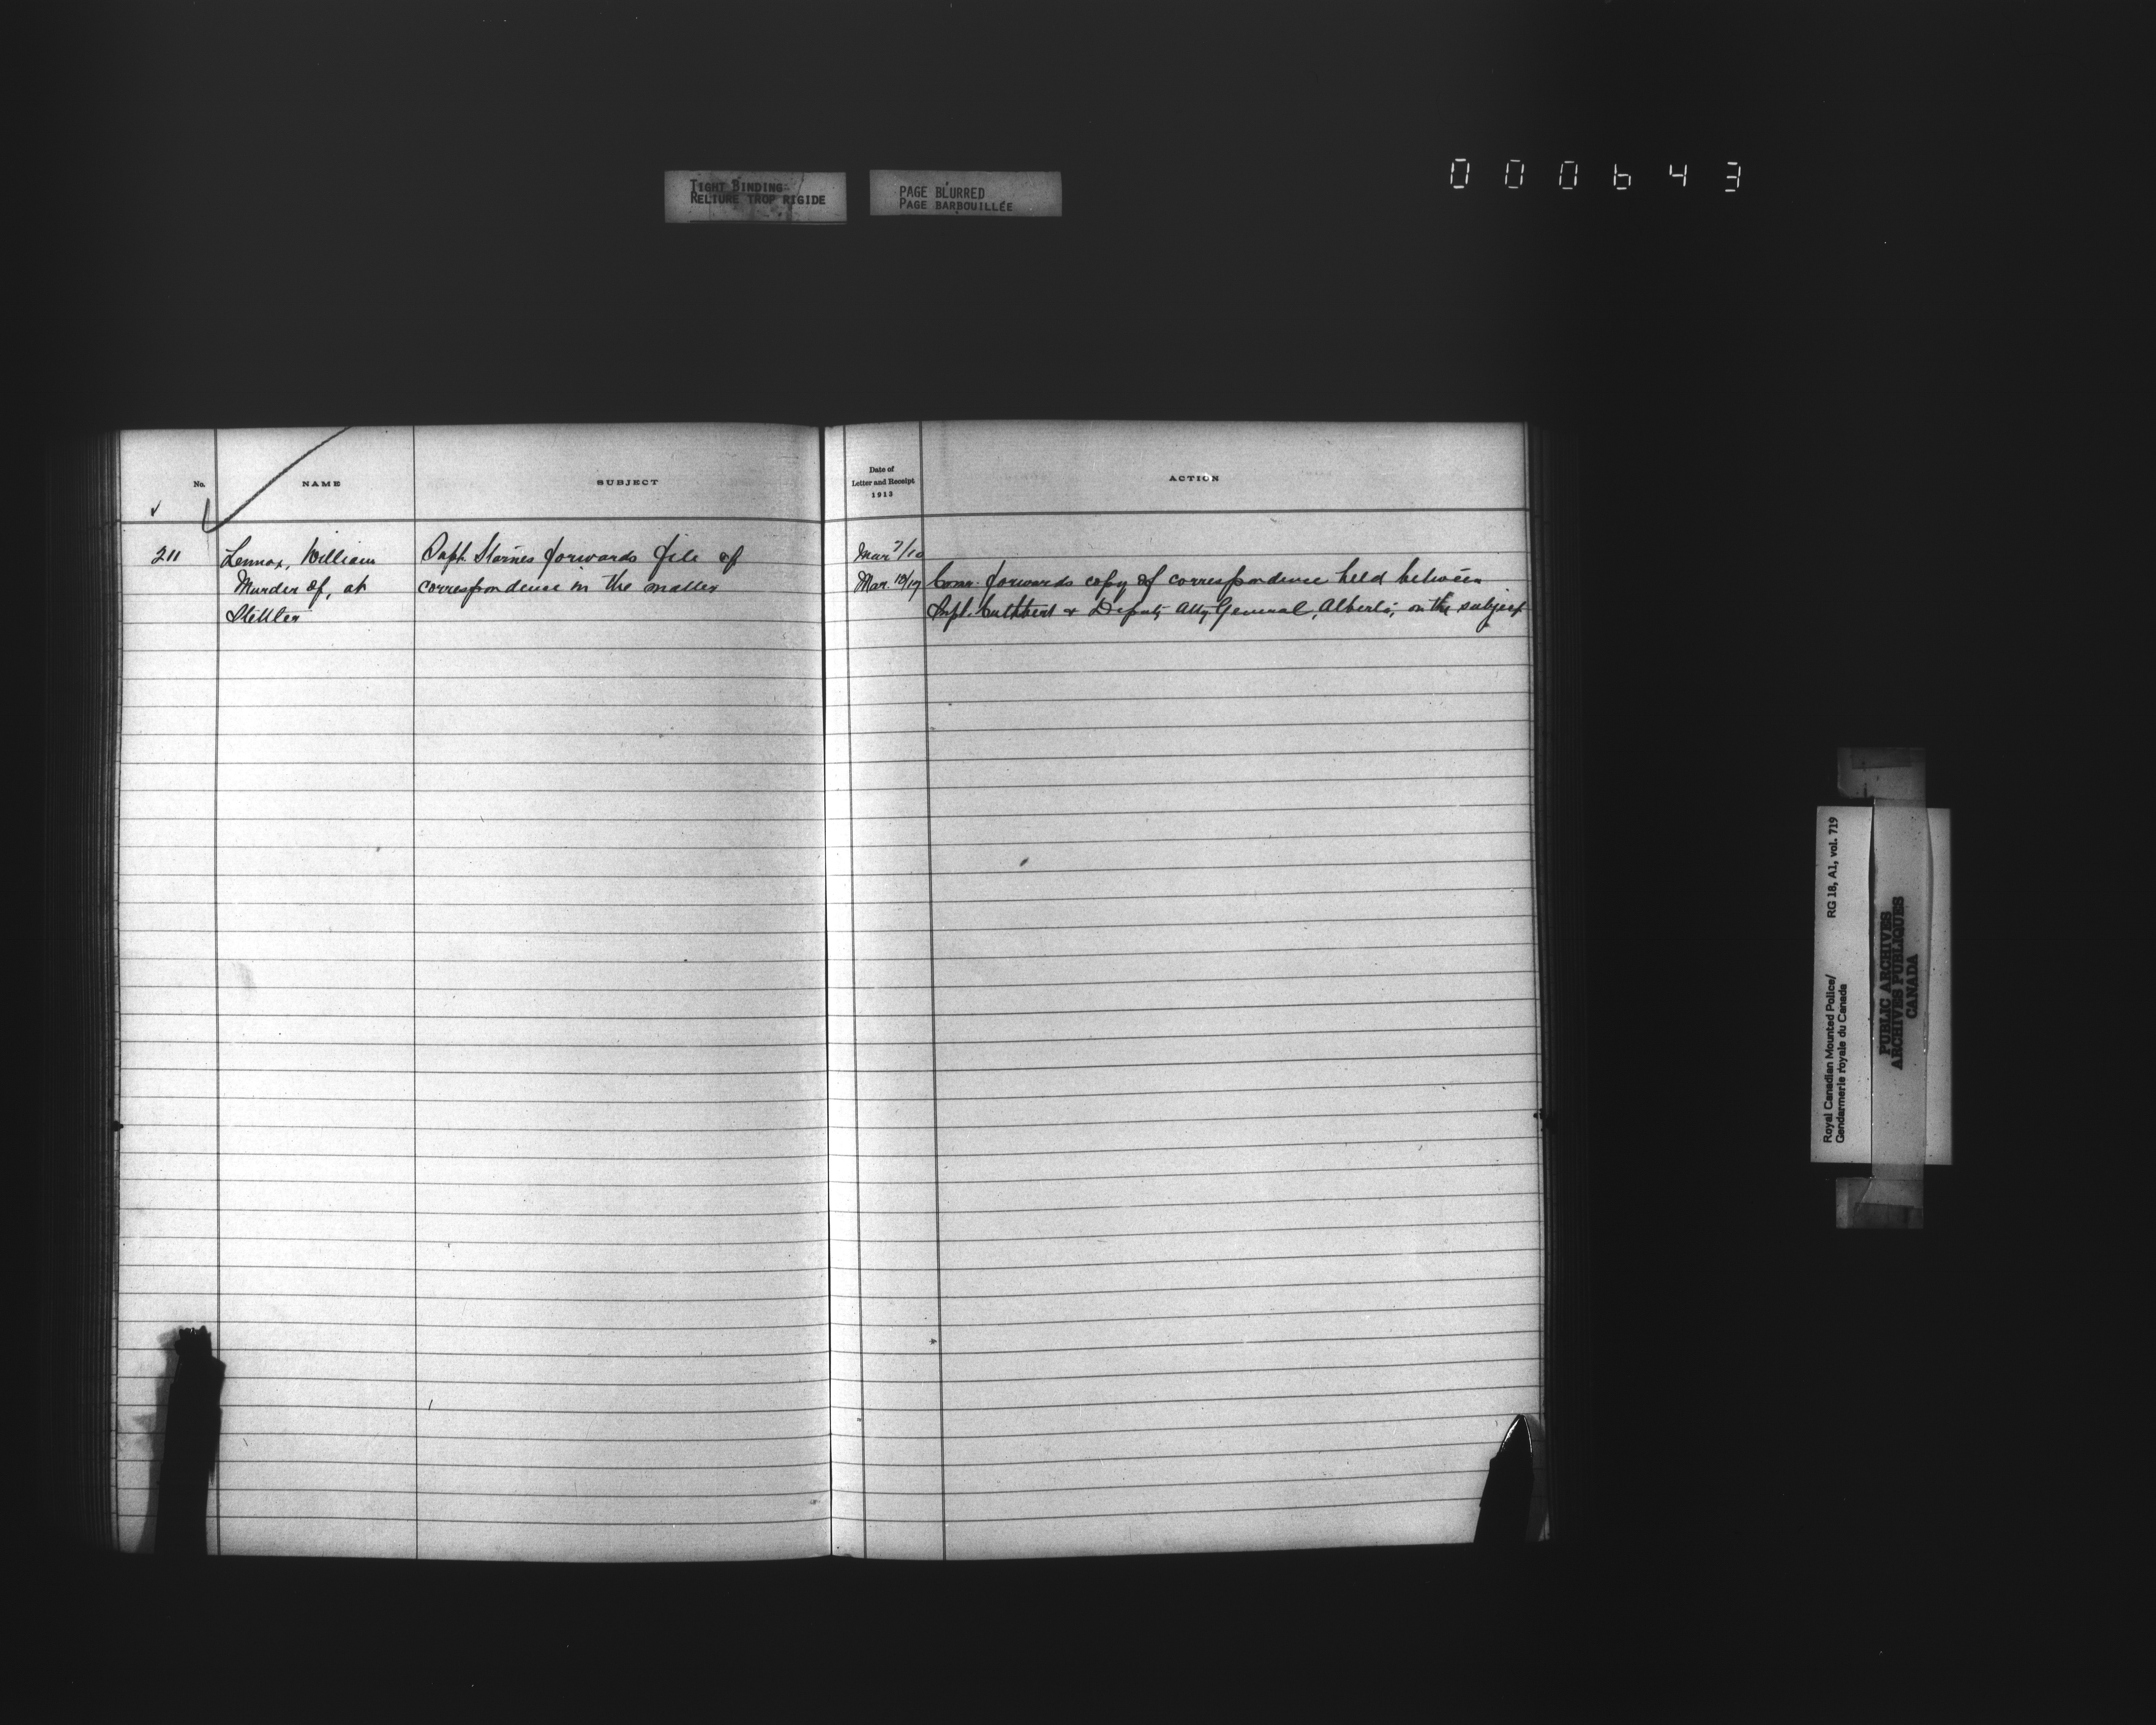 TIGHT BINDING
RELIURE TROP RIGIDE
PAGE BLURRED
PAGE BARBOUILLÉE
000643
No.
NAME
SUBJECT
Date of
Letter and Receipt
1913
ACTION
211
Lennox, William
Murder of, at
Stettler
Supt. Starnes forwards file of
correspondence in the matter
Mar 7/10
Mar. 12/17
Comr. forwards copy of correspondence held between
Supt. Cuthbert & Deputy Atty General, Alberta, on the subject
Royal Canadian Mounted Police/
Gendarmerie royale du Canada
RG 18, A1, vol. 719
PUBLIC ARCHIVES
ARCHIVES PUBLIQUES
CANADA